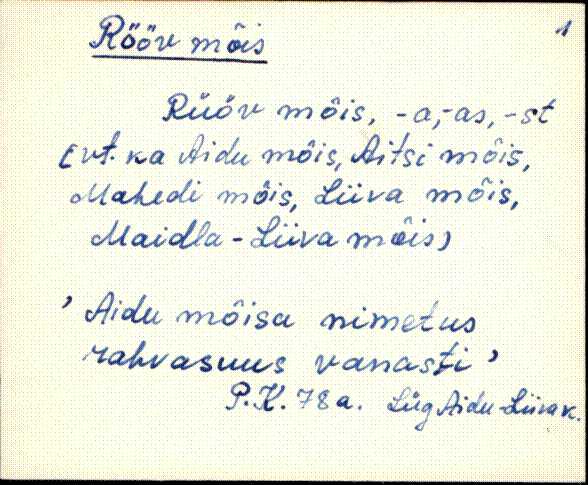 1
Rööv mõis
Rüöv mõis, -a, -as, -st
(vt. ka Aidu mõis, Aitsi mõis,
Mahedi mõis, Liiva mõis,
Maidla-Liiva mõis)
'Aidu mõisa nimetus
rahvasuus vanasti'
P.K. 78 a. Lüg Aidu-Liiva k.